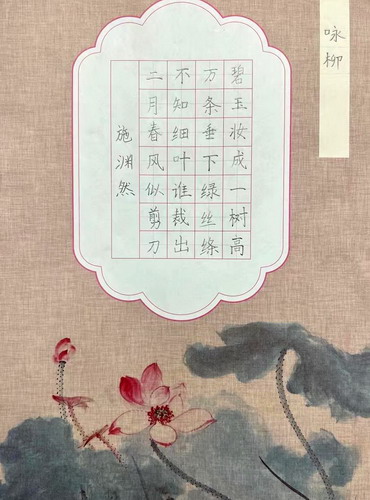 咏柳
碧玉妆成一树高
万条垂下绿丝绦
不知细叶谁裁出
二月春风似剪刀
施渊然